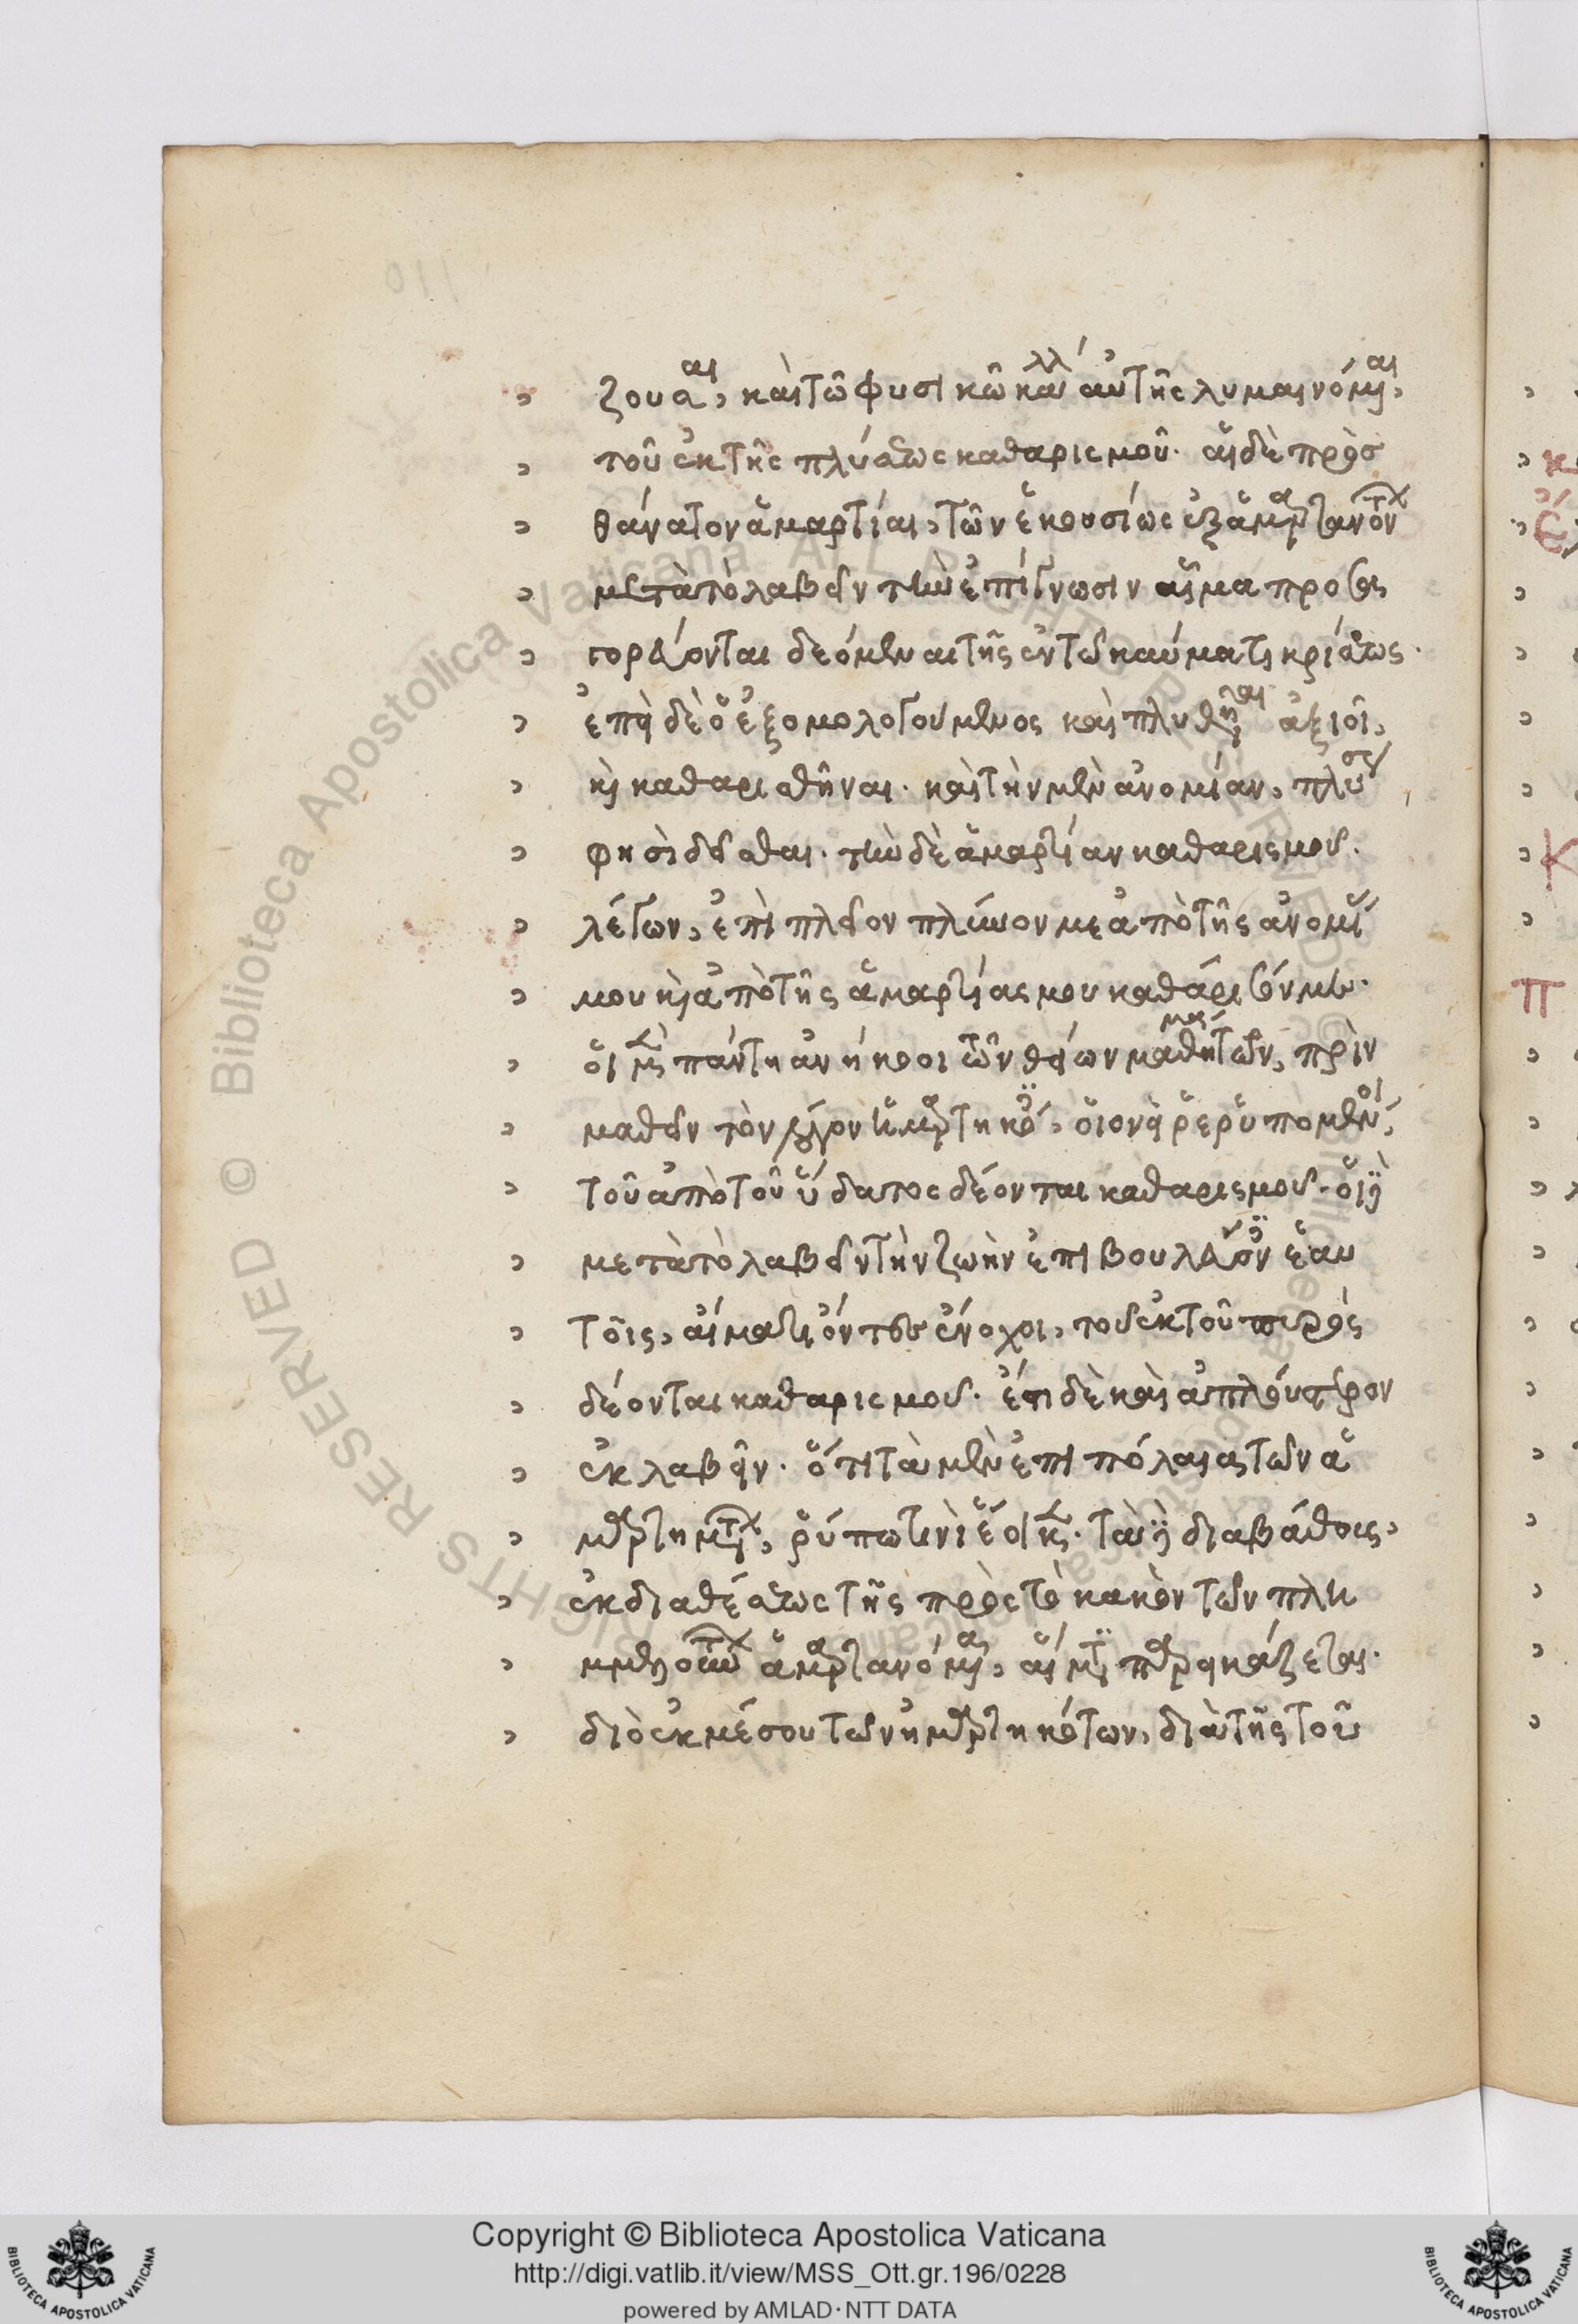 ζουσαι, καὶ τῶ φυσικῶ κάλλει αὐτῆς λυμαινόμεναι,
τοῦ ἐκ τῆς πλύσεως καθαρισμοῦ. αἱ δὲ πρὸσ
θάνατον ἁμαρτίαι, τῶν ἑκουσίως ἐξαμαρτανόντων
μετὰ τὸ λαβεῖν τὴν ἐπίγνωσιν αἷμα προσα
γορεύονται δεόμεναι τῆς ἐν τῶ καύματι κρίσεως.
ἐπεὶ δὲ ὁ ἐξομολογούμενος καὶ πλυθῆναι ἀξιοῖ,
καὶ καθαρισθῆναι. καὶ τὴν μὲν ἀνομίαν, πλύσεως
φησὶ δεῖσθαι. τὴν δὲ ἁμαρτίαν καθαρισμοῦ.
λέγων, ἐπὶ πλεῖον πλῦνόν με ἀπὸ τῆς ἀνομίας
μου καὶ ἀπὸ τῆς ἁμαρτίας μου καθάρισόν με.
οἱ μὲν πάντη ἀνήκοοι τῶν θείων μαθημάτων, πρὶν
μαθεῖν τὸν λόγον ἡμαρτηκότες, οἱονεὶ ῥερυπωμένοι,
τοῦ ἀπὸ τοῦ ὕδατος δέονται καθαρισμοῦ. οἱ δὲ
μετὰ τὸ λαβεῖν τὴν ζωὴν ἐπιβουλεύοντες ἑαυ
τοῖς, αἵματι ὄντες ἔνοχοι, τοῦ ἐκ τοῦ πυρὸς
δέονται καθαρισμοῦ. ἔτι δὲ καὶ ἁπλούστερον
ἐκλαβεῖν. ὅτι τὰ μὲν ἐπιπόλαια τῶν ἁ
μαρτημάτων, ῥύπω τινὶ ἔοικε. τὰ δὲ διὰ βάθους,
ἐκ διαθέσεως τῆς πρὸς τὸ κακὸν τῶν πλη
μμελούντων ἁμαρτανόμενα, αἵματι παρεικάζεται.
διὸ ἐκ μέσου τῶν ἡμαρτηκότων, διὰ τῆς τοῦ
Copyright © Biblioteca Apostolica Vaticana
http://digi.vatlib.it/view/MSS_Ott.gr.196/0228
powered by AMLAD · NTT DATA